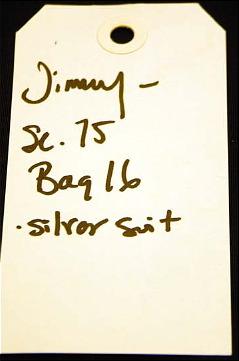 Jimmy -
Sc. 75
Bag 16
. silver suit